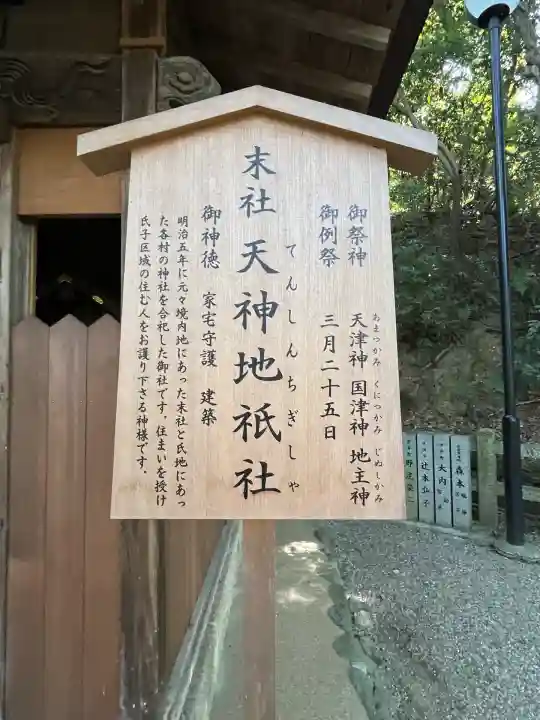 御祭神 天津神 国津神 地主神
あまつかみ くにつかみ じぬしかみ
御例祭 三月二十五日
末社 天神地祇社
てんしんちぎしゃ
御神徳 家宅守護 建築
明治五年に元々境内地にあった末社と氏地にあっ
た各村の神社を合祀した御社です。住まいを授け
氏子区域の住む人をお護り下さる神様です。
森本
大内
辻本弘子